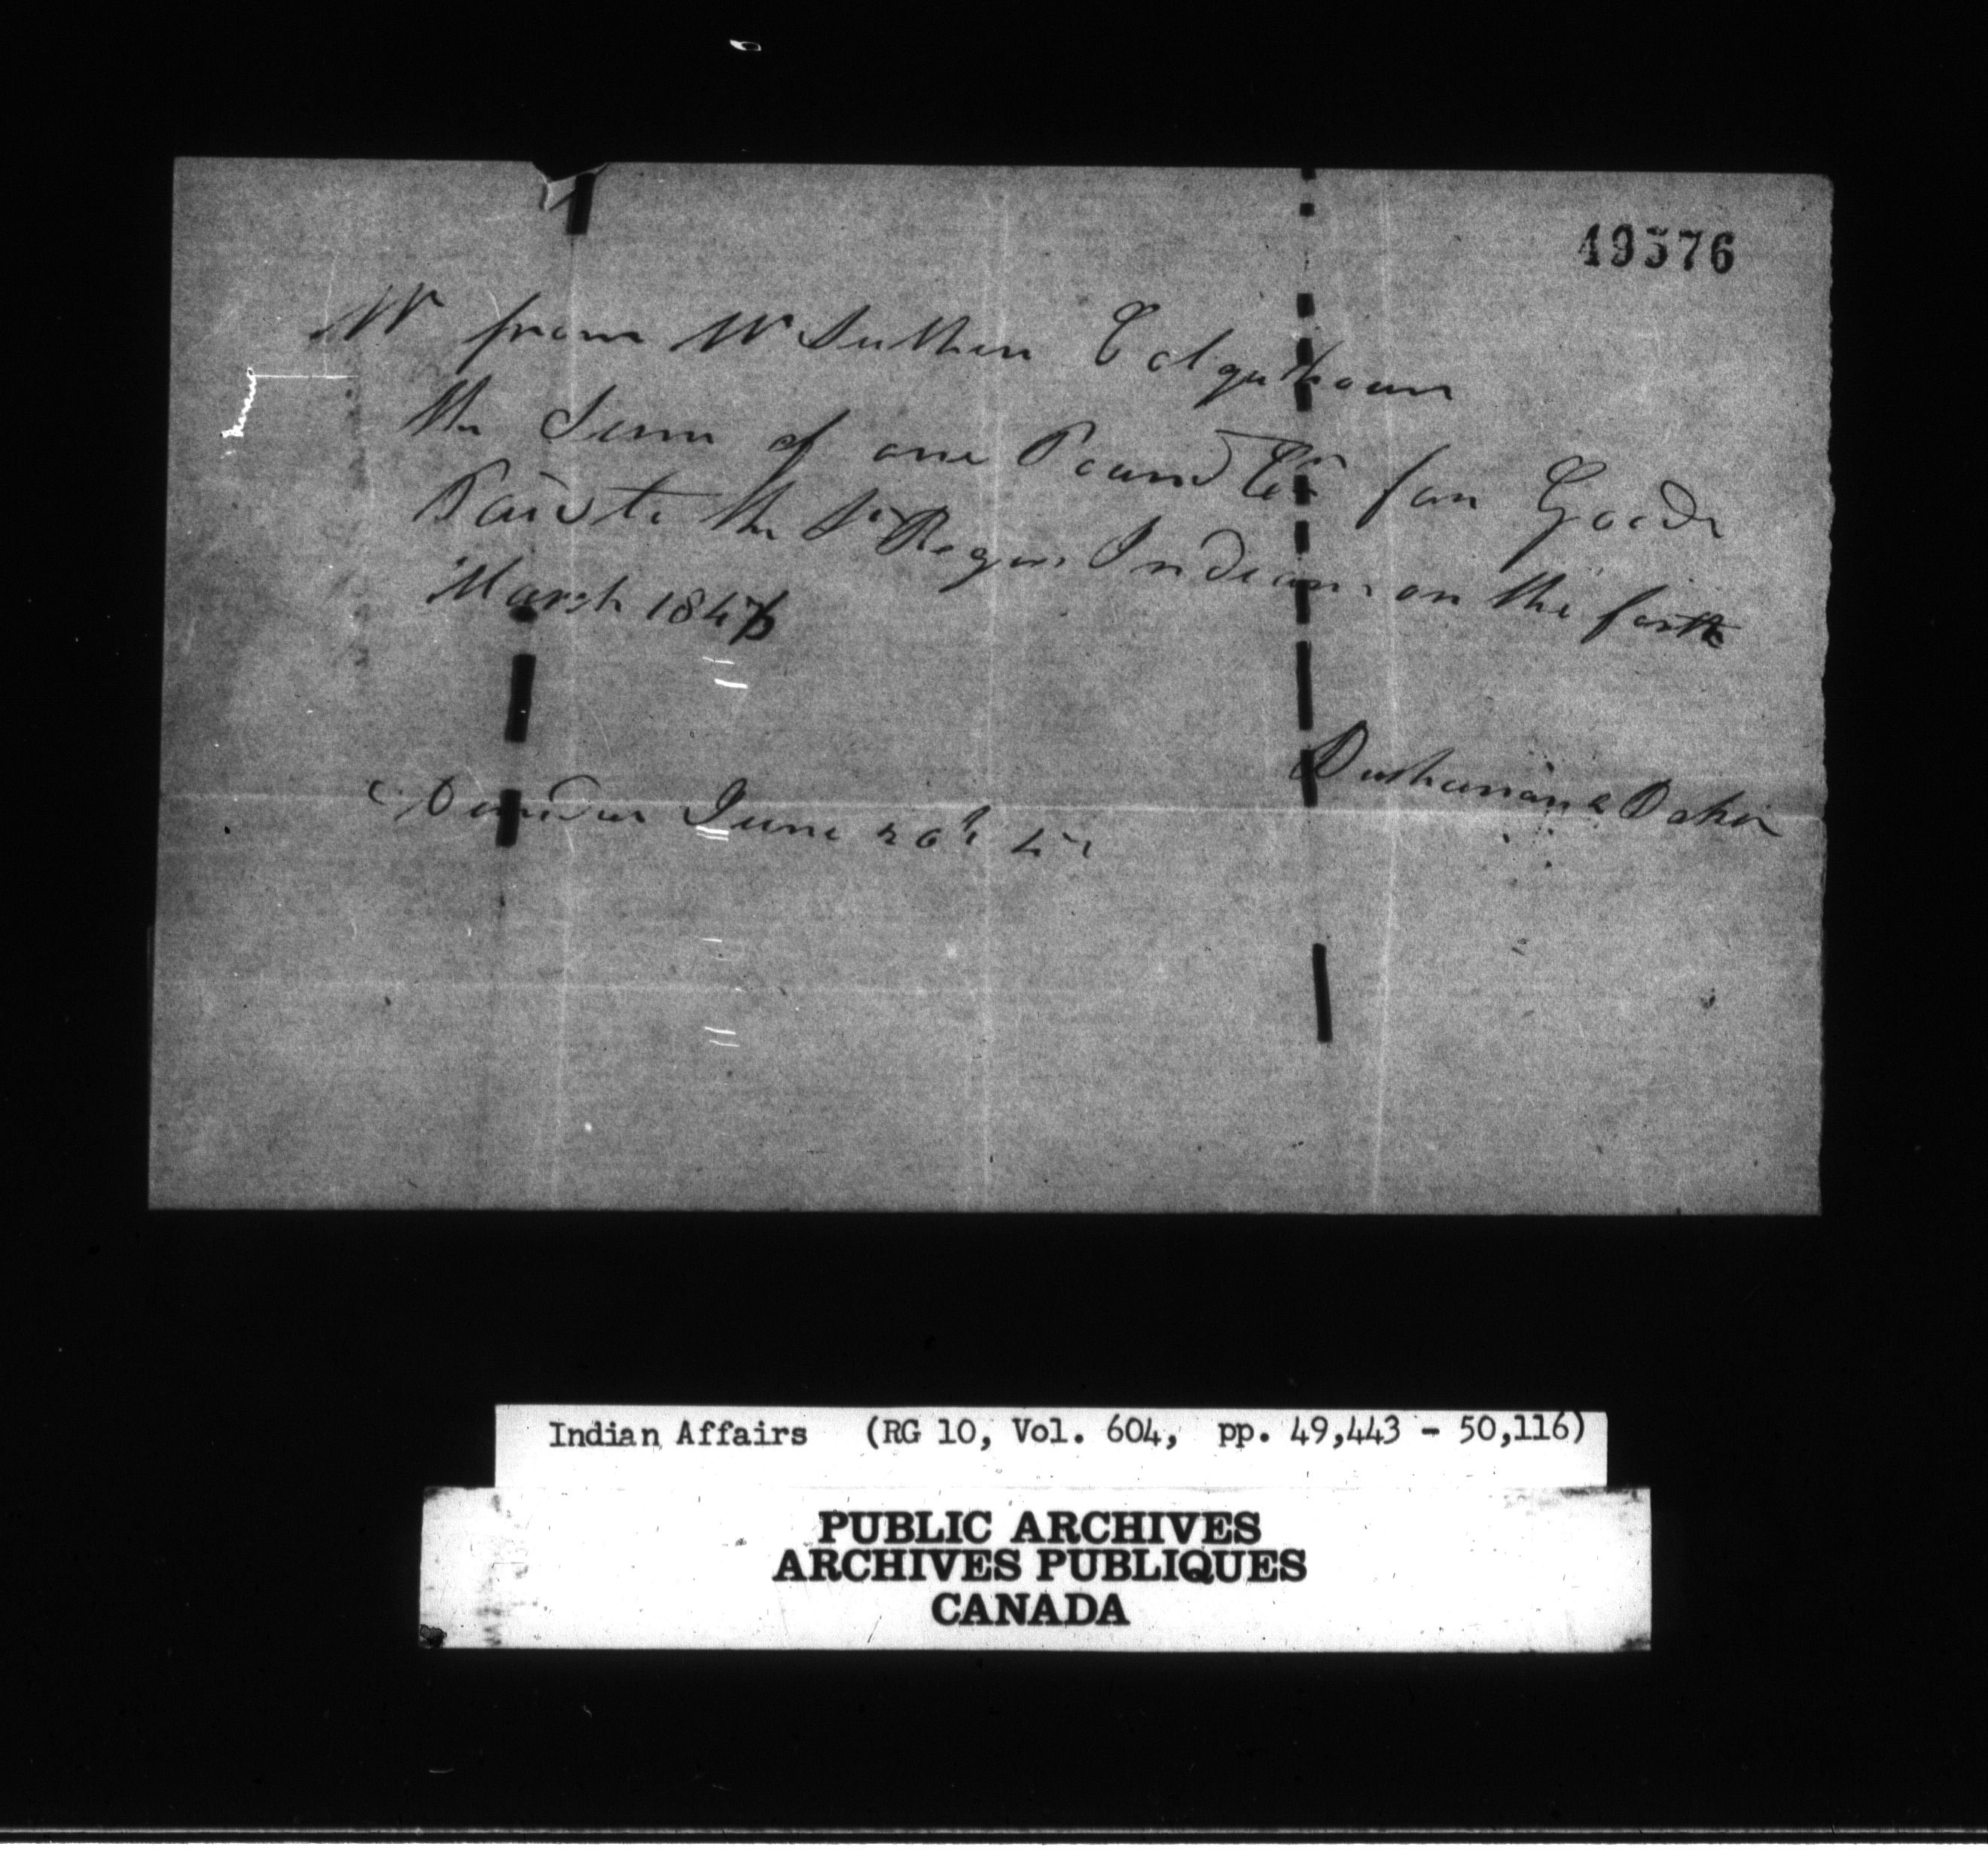 49576
from Mr Luther Colquhoun
the Sum of one Pound Cy for Goods
Paid to the St Regis Indians on the forth
March 1846
Buchanan & Baker
Dundee June 26th
Indian Affairs (RG 10, Vol. 604, pp. 49,443 - 50,116)
PUBLIC ARCHIVES
ARCHIVES PUBLIQUES
CANADA